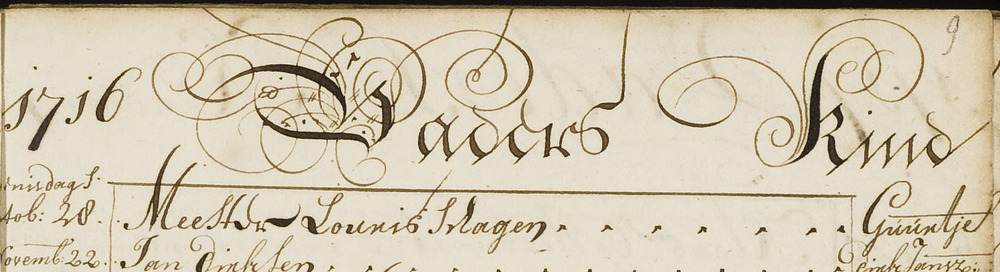 9
1716 Vaders Kind
Octob: 28. Meester Louris Hagen Guurtje
Novemb: 22. Jan Dirksen Dirk Jansz: